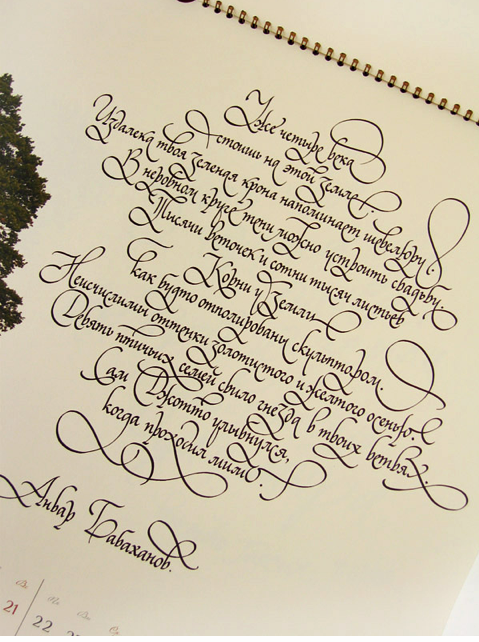 Уже четыре века
стоишь на этой земле.
Издалека твоя зеленая крона напоминает шевелюру.
В неровном круге тени можно устроить свадьбу.
Тысячи веточек и сотни тысяч листьев
Корни у Земли
как будто отполированы скульптором.
Неисчислимы оттенки золотистого и желтого осенью.
Девять птичьих семей свило гнезда в твоих ветвях.
Сам Джотто улыбнулся,
когда проходил мимо.
Анвар Бабаханов.
21 22